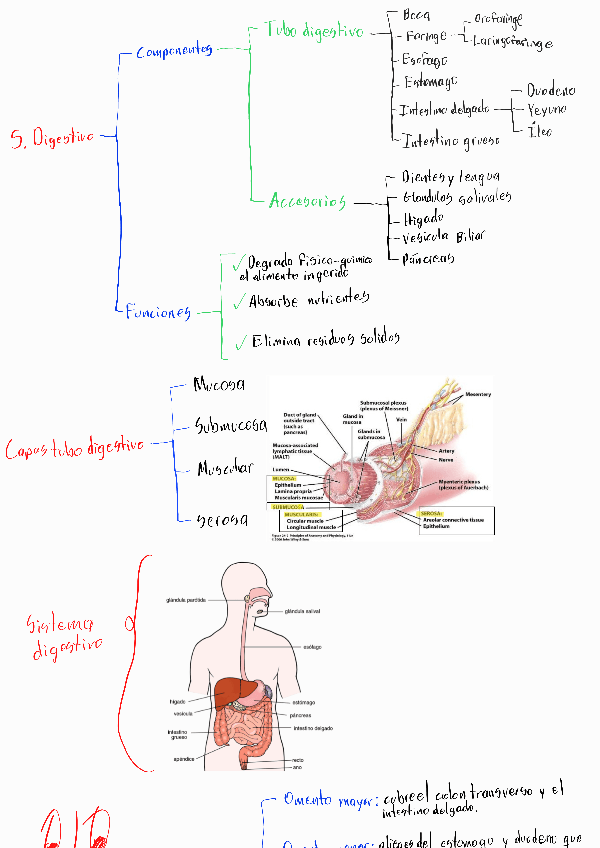 S. Digestivo
Componentes
Tubo digestivo
Boca
Faringe
Orofaringe
Laringofaringe
Esofago
Estomago
Intestino delgado
Duodeno
Yeyuno
Íleo
Intestino grueso
Accesorios
Dientes y lengua
Glandulas salivales
Higado
Vesicula Biliar
Páncreas
Funciones
✓ Degrada fisico-quimico
el alimento ingerido
✓ Absorbe nutrientes
✓ Elimina residuos solidos
Capas tubo digestivo
Mucosa
Submucosa
Muscular
Serosa
Mesentery
Submucosal plexus
(plexus of Meissner)
Vein
Duct of gland
outside tract
(such as
pancreas)
Gland in
mucosa
Gland in
submucosa
Mucosa-associated
lymphatic tissue
(MALT)
Lumen
Artery
Nerve
Myenteric plexus
(plexus of Auerbach)
MUCOSA:
Epithelium
Lamina propria
Muscularis mucosae
SUBMUCOSA
MUSCULARIS:
Circular muscle
Longitudinal muscle
SEROSA:
Areolar connective tissue
Epithelium
Principles of Anatomy and Physiology, 11/e
© 2006 John Wiley & Sons
Sistema
digestivo
glándula parótida
glándula salival
esófago
hígado
vesícula
estómago
páncreas
intestino
grueso
intestino delgado
apéndice
recto
ano
Omento mayor: cubre el colon transverso y el
intestino delgado.
del estomago y duodeno que